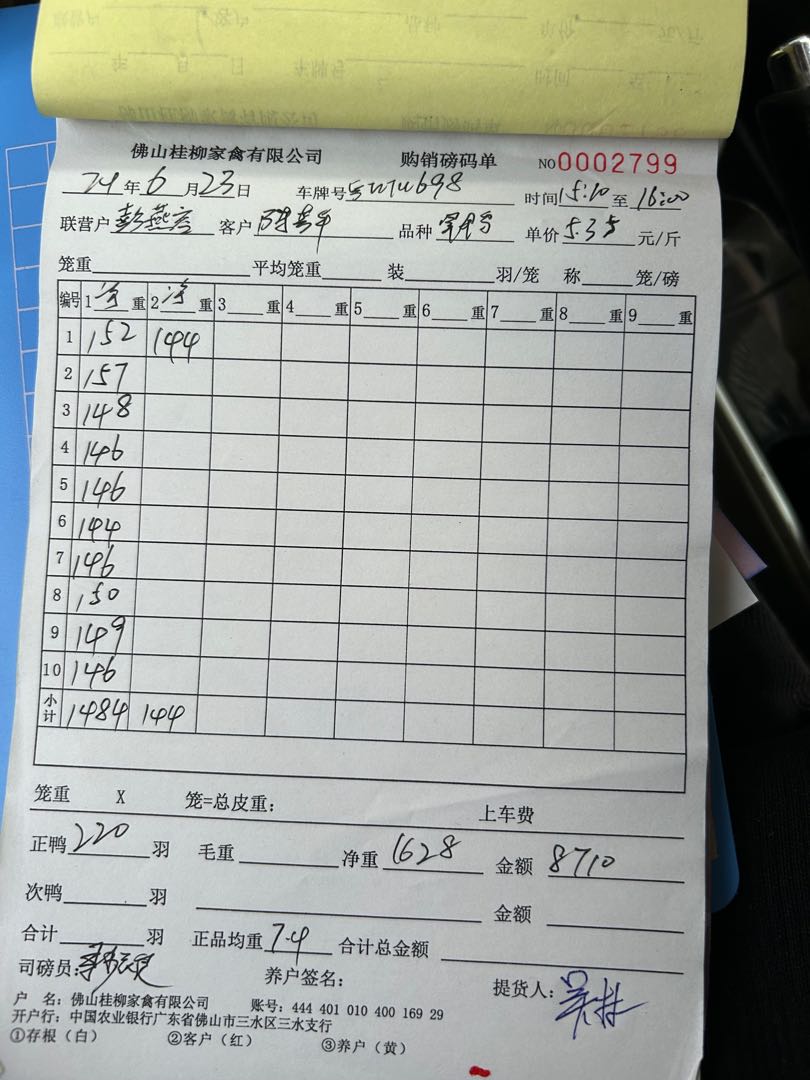 佛山桂柳家禽有限公司 购销磅码单 NO0002799
24年6月23日 车牌号 时间15:10至16:00
联营户彭燕 客户 品种 单价5.35元/斤
笼重 平均笼重 装 羽/笼 称 笼/磅
编号 1净重 2净重 3 重 4 重 5 重 6 重 7 重 8 重 9 重
1 152 144
2 157
3 148
4 146
5 146
6 144
7 146
8 150
9 149
10 146
小计 1484 144
笼重 X 笼=总皮重: 上车费
正鸭220羽 毛重 净重1628 金额8710
次鸭 羽 金额
合计 羽 正品均重7.4 合计总金额
司磅员: 养户签名: 提货人:
户 名: 佛山桂柳家禽有限公司 账号: 444 401 010 400 169 29
开户行: 中国农业银行广东省佛山市三水区三水支行
①存根(白) ②客户(红) ③养户(黄)